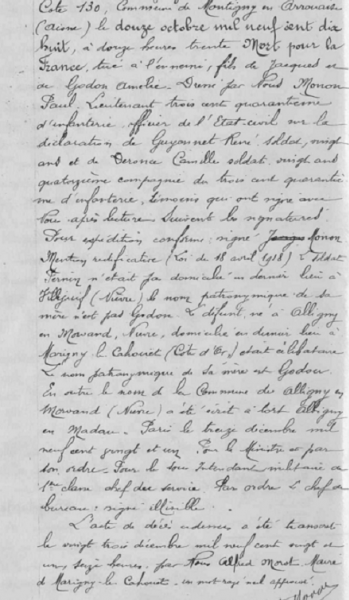 Cote 130, Commune de Montigny en Arrouaise
(Aisne) le douze octobre mil neuf cent dix
huit, à douze heures trente Mort pour la
France, tué à l'ennemi, fils de Jacques et
de Godon Amélie Dressé par Nous Monon
Paul, Lieutenant trois cent quarantième
d'infanterie officier de l'Etat civil sur la
déclaration de Guyonnet René soldat, vingt
ans et de Deronce Camille soldat, vingt ans
quatorzième compagnie du trois cent quarantiè
me d'infanterie, témoins qui ont signé avec
Nous après lecture Suivent les signatures
Pour expédition conforme, signé Monon
Mention rectificative (Loi du 18 avril 1918) Le Soldat
Pernin n'était pas domicilié en dernier lieu à
Villejuif (Nièvre) le nom patronymique de sa
mère n'est pas Godon. Le défunt, né à Alligny
en Morvand, Nièvre, domicilié en dernier lieu à
Marigny le Cahouet (Côte d'Or) était célibataire
Le nom patronymique de sa mère est
En outre le nom de la Commune de Alligny en
Morvand (Nièvre) a été écrit à tort Alligny
en Paris le treize décembre mil
neuf cent vingt et un Pour le Ministre et par
son ordre. Pour le Sous Intendant militaire de
1ère classe chef du service. Par ordre Le chef de
bureau : signé illisible.
L'acte de décès ci dessus a été transcrit
le vingt trois décembre mil neuf cent vingt et
un, seize heures, par Nous Alfred Morot Maire
de Marigny le Cahouet. un mot rayé nul approuvé
Morot